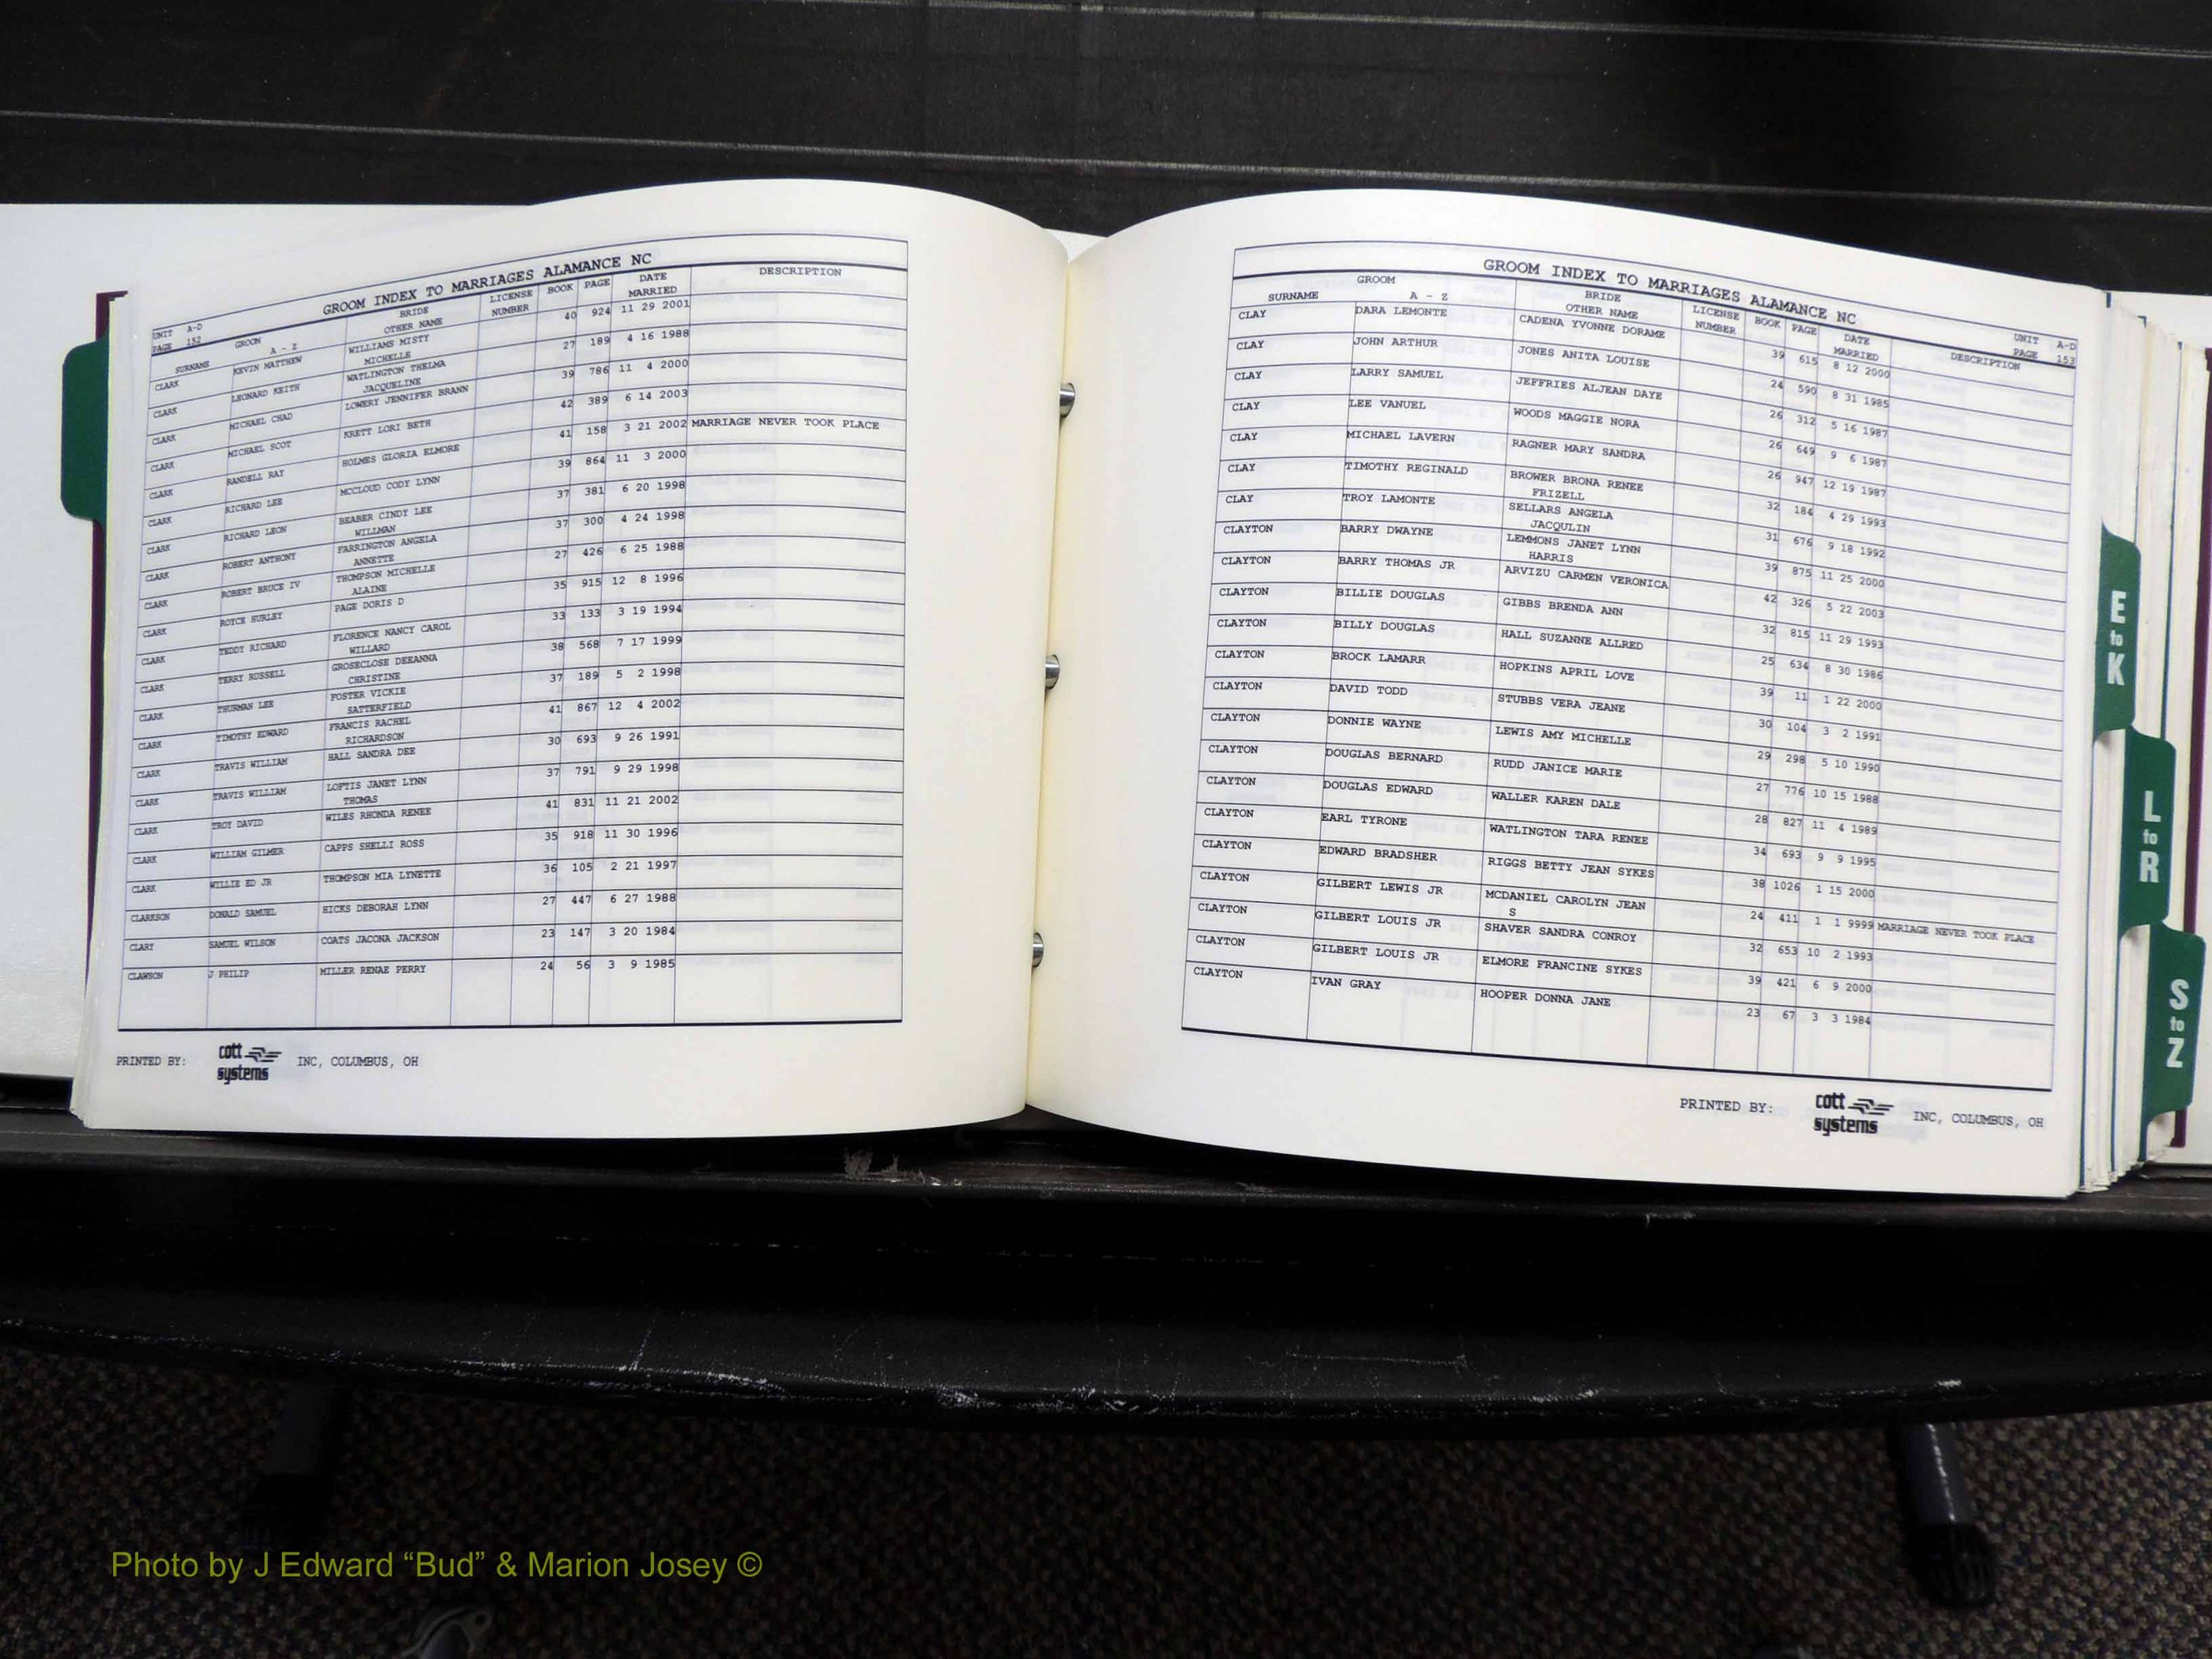 GROOM INDEX TO MARRIAGES ALAMANCE NC
UNIT A-D
PAGE 152
SURNAME GROOM A - Z BRIDE OTHER NAME LICENSE NUMBER BOOK PAGE DATE MARRIED DESCRIPTION
CLARK KEVIN MATTHEW WILLIAMS MISTY MICHELLE 40 924 11 29 2001
CLARK LEONARD KEITH WATLINGTON THELMA JACQUELINE 27 189 4 16 1988
CLARK MICHAEL CHAD LOWERY JENNIFER BRANN 39 786 11 4 2000
CLARK MICHAEL SCOT KRETT LORI BETH 42 389 6 14 2003
CLARK RANDELL RAY HOLMES GLORIA ELMORE 41 158 3 21 2002 MARRIAGE NEVER TOOK PLACE
CLARK RICHARD LEE MCCLOUD CODY LYNN 39 864 11 3 2000
CLARK RICHARD LEON BEABER CINDY LEE WILLMAN 37 381 6 20 1998
CLARK ROBERT ANTHONY FARRINGTON ANGELA ANNETTE 37 300 4 24 1998
CLARK ROBERT BRUCE IV THOMPSON MICHELLE ALAINE 27 426 6 25 1988
CLARK ROYCE HURLEY PAGE DORIS D 35 915 12 8 1996
CLARK TEDDY RICHARD FLORENCE NANCY CAROL WILLARD 33 133 3 19 1994
CLARK TERRY RUSSELL GROSECLOSE DEEANNA CHRISTINE 38 568 7 17 1999
CLARK THURMAN LEE FOSTER VICKIE SATTERFIELD 37 189 5 2 1998
CLARK TIMOTHY EDWARD FRANCIS RACHEL RICHARDSON 41 867 12 4 2002
CLARK TRAVIS WILLIAM HALL SANDRA DEE 30 693 9 26 1991
CLARK TRAVIS WILLIAM LOFTIS JANET LYNN THOMAS 37 791 9 29 1998
CLARK TROY DAVID WILES RHONDA RENEE 41 831 11 21 2002
CLARK WILLIAM GILMER CAPPS SHELLI ROSS 35 918 11 30 1996
CLARK WILLIE ED JR THOMPSON MIA LYNETTE 36 105 2 21 1997
CLARKSON DONALD SAMUEL HICKS DEBORAH LYNN 27 447 6 27 1988
CLARY SAMUEL WILSON COATS JACONA JACKSON 23 147 3 20 1984
CLAWSON J PHILIP MILLER RENAE PERRY 24 56 3 9 1985
PRINTED BY: cott systems INC, COLUMBUS, OH
GROOM INDEX TO MARRIAGES ALAMANCE NC
UNIT A-D
PAGE 153
SURNAME GROOM A - Z BRIDE OTHER NAME LICENSE NUMBER BOOK PAGE DATE MARRIED DESCRIPTION
CLAY DARA LEMONTE CADENA YVONNE DORAME 39 615 8 12 2000
CLAY JOHN ARTHUR JONES ANITA LOUISE 24 590 8 31 1985
CLAY LARRY SAMUEL JEFFRIES ALJEAN DAYE 26 312 5 16 1987
CLAY LEE VANUEL WOODS MAGGIE NORA 26 649 9 6 1987
CLAY MICHAEL LAVERN RAGNER MARY SANDRA 26 947 12 19 1987
CLAY TIMOTHY REGINALD BROWER BRONA RENEE FRIZELL 32 184 4 29 1993
CLAY TROY LAMONTE SELLARS ANGELA JACQULIN 31 676 9 18 1992
CLAYTON BARRY DWAYNE LEMMONS JANET LYNN HARRIS 39 875 11 25 2000
CLAYTON BARRY THOMAS JR ARVIZU CARMEN VERONICA 42 326 5 22 2003
CLAYTON BILLIE DOUGLAS GIBBS BRENDA ANN 32 815 11 29 1993
CLAYTON BILLY DOUGLAS HALL SUZANNE ALLRED 25 634 8 30 1986
CLAYTON BROCK LAMARR HOPKINS APRIL LOVE 39 11 1 22 2000
CLAYTON DAVID TODD STUBBS VERA JEANE 30 104 3 2 1991
CLAYTON DONNIE WAYNE LEWIS AMY MICHELLE 29 298 5 10 1990
CLAYTON DOUGLAS BERNARD RUDD JANICE MARIE 27 776 10 15 1988
CLAYTON DOUGLAS EDWARD WALLER KAREN DALE 28 827 11 4 1989
CLAYTON EARL TYRONE WATLINGTON TARA RENEE 34 693 9 9 1995
CLAYTON EDWARD BRADSHER RIGGS BETTY JEAN SYKES 38 1026 1 15 2000
CLAYTON GILBERT LEWIS JR MCDANIEL CAROLYN JEAN S 24 411 1 1 9999 MARRIAGE NEVER TOOK PLACE
CLAYTON GILBERT LOUIS JR SHAVER SANDRA CONROY 32 653 10 2 1993
CLAYTON GILBERT LOUIS JR ELMORE FRANCINE SYKES 39 421 6 9 2000
CLAYTON IVAN GRAY HOOPER DONNA JANE 23 67 3 3 1984
PRINTED BY: cott systems INC, COLUMBUS, OH
E to K
L to R
S to Z
Photo by J Edward “Bud” & Marion Josey ©